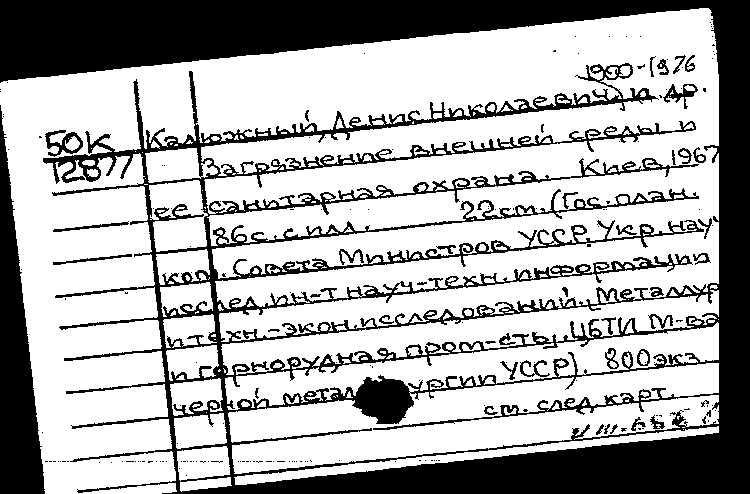 1900-1976
50К Калюжный, Денис Николаевич, и др.
12877 Загрязнение внешней среды и
ее санитарная охрана. Киев, 1967
86 с. с илл. 22 см. (Гос. план.
ком. Совета Министров УССР. Укр. науч
исслед. ин-т науч-техн. информации
и техн.-экон. исследований. [Металлур
и горнорудная пром-сть]. ЦБТИ М-ва
черной металлургии УССР). 800 экз.
см. след. карт.